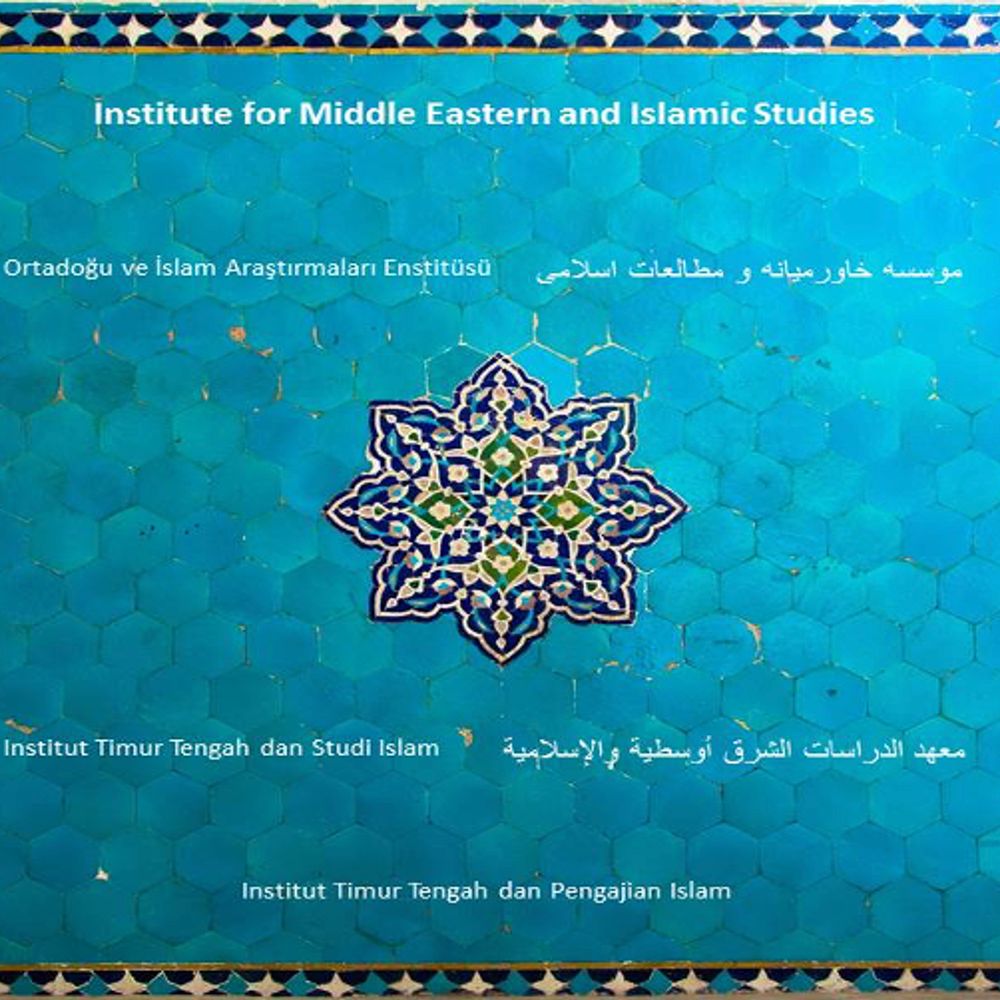 Institute for Middle Eastern and Islamic Studies
Ortadoğu ve İslam Araştırmaları Enstitüsü
موسسه خاورمیانه و مطالعات اسلامی
Institut Timur Tengah dan Studi Islam
معهد الدراسات الشرق أوسطية والإسلامية
Institut Timur Tengah dan Pengajian Islam